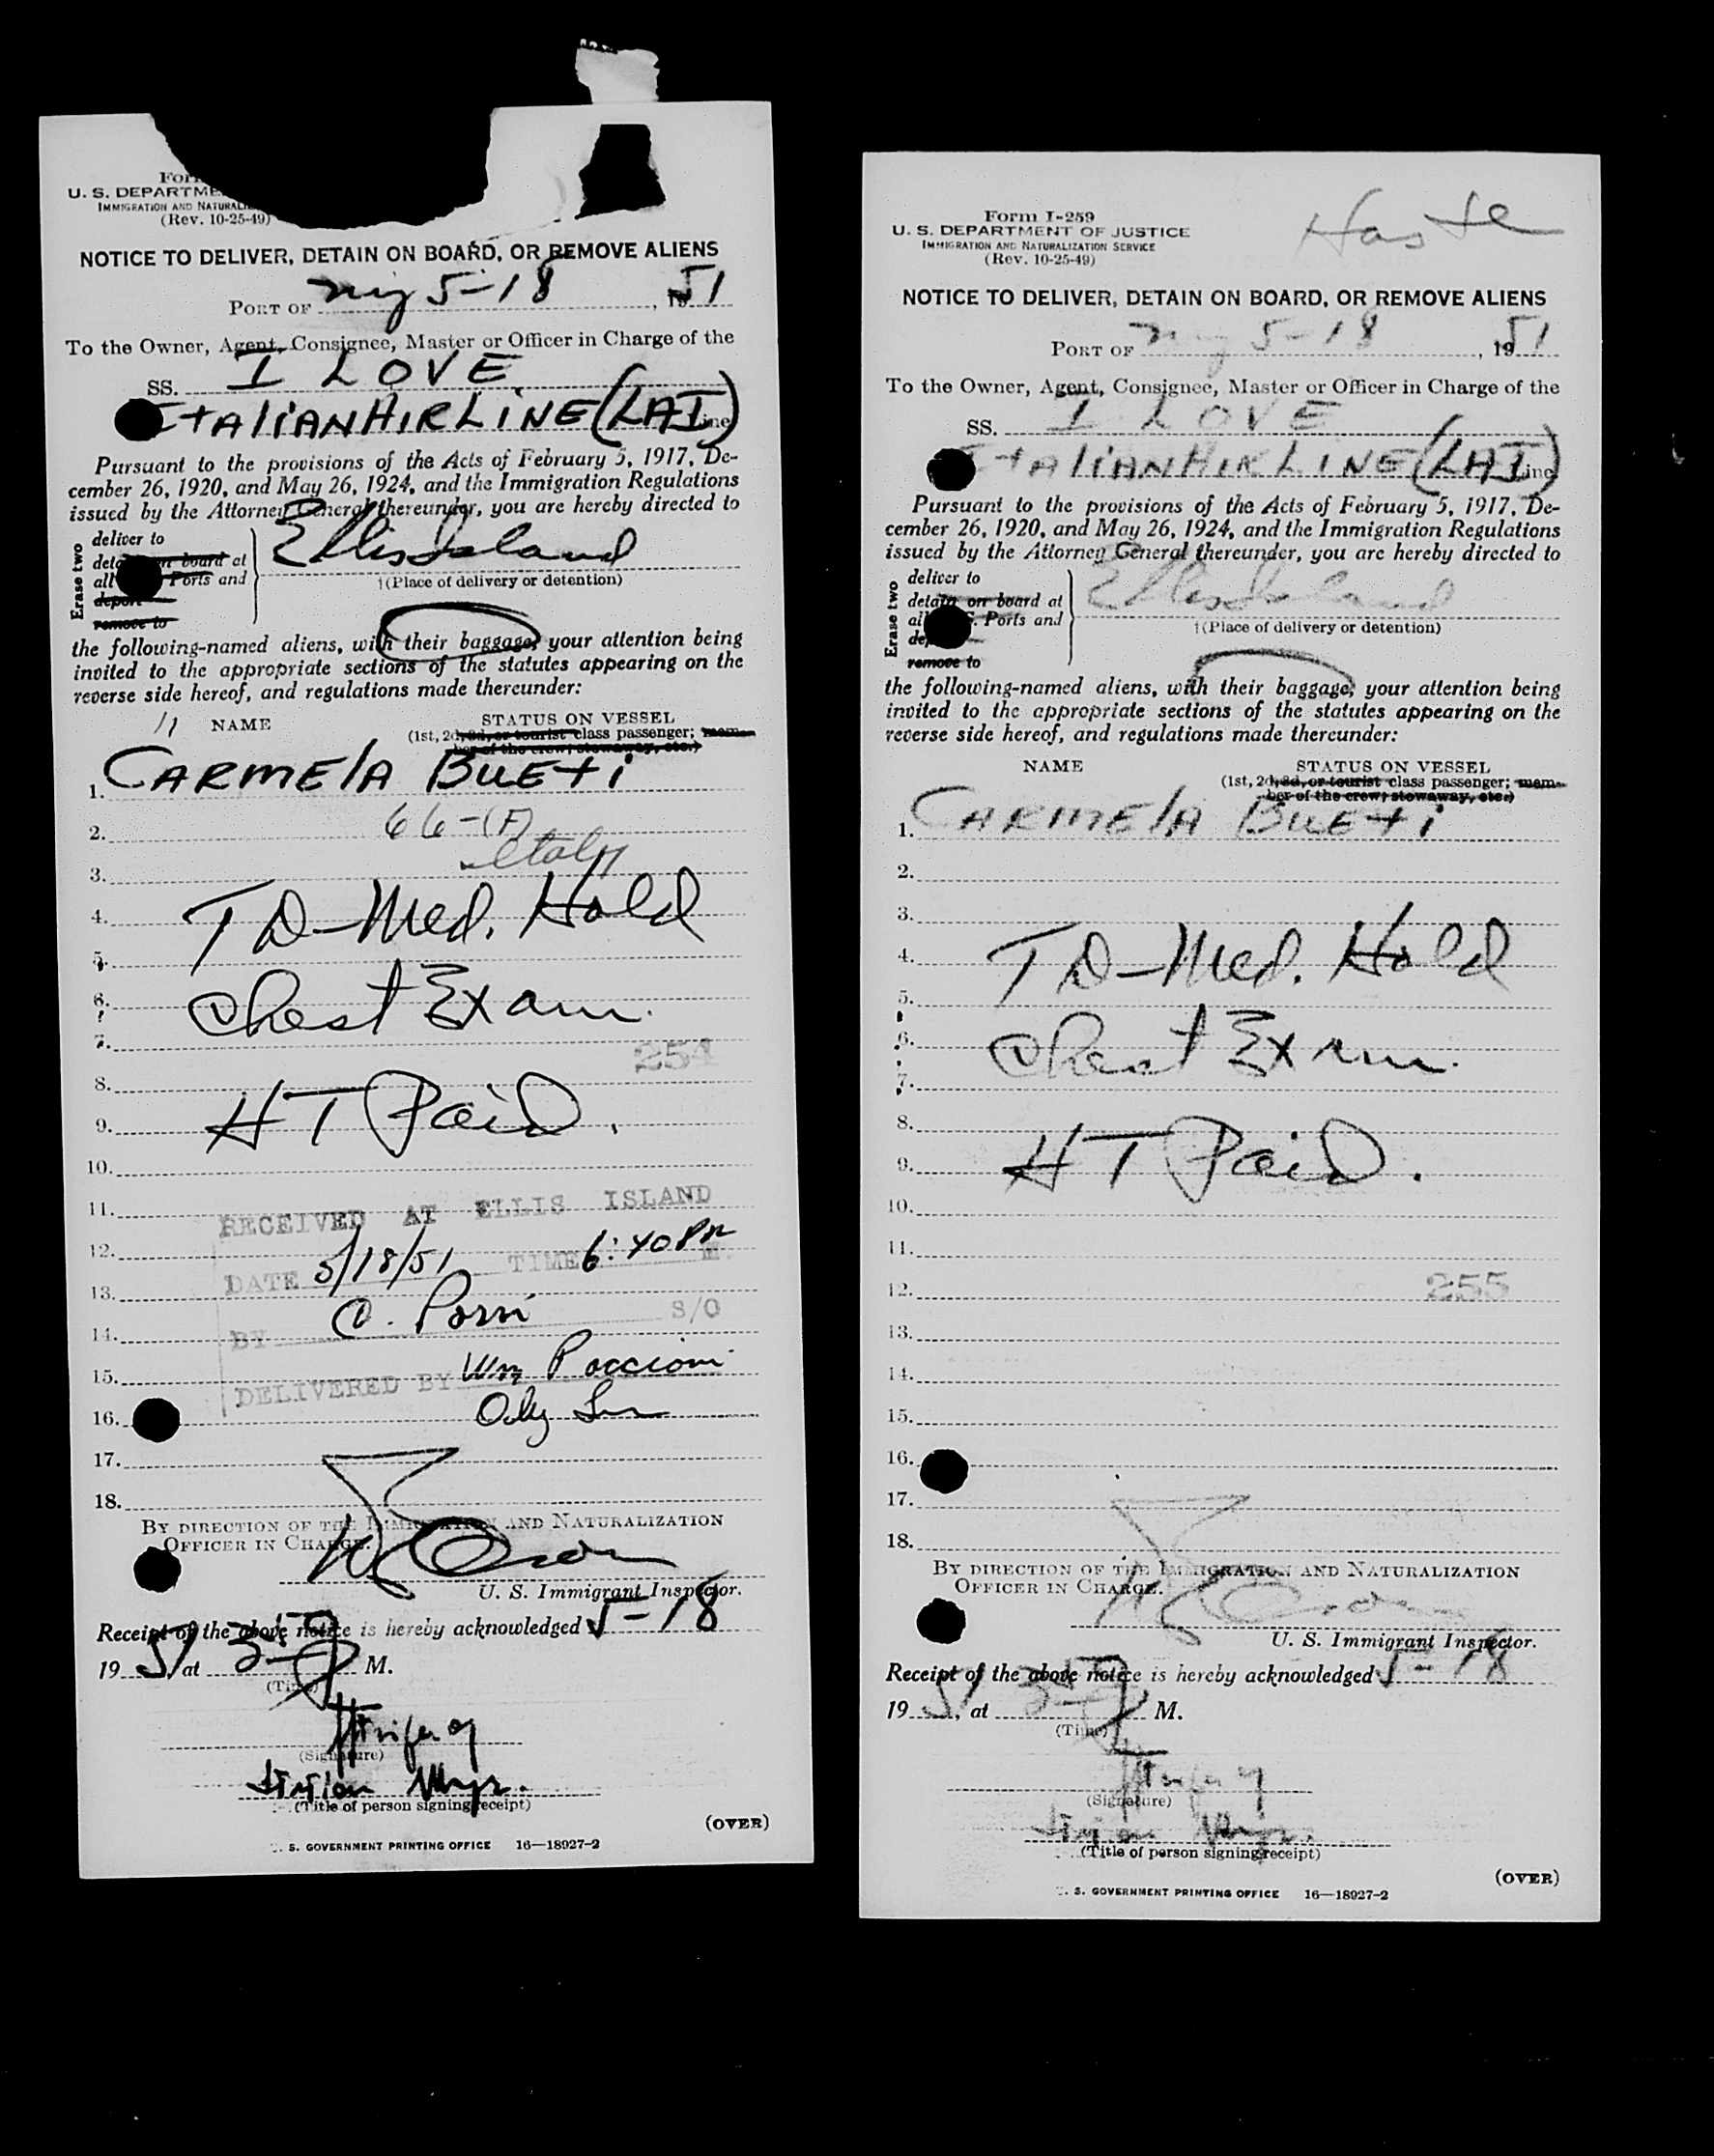 U. S. DEPARTME
IMMIGRATION AND NATURAL
(Rev. 10-25-49)
NOTICE TO DELIVER, DETAIN ON BOARD, OR REMOVE ALIENS
PORT OF ny 5-18, 1951
To the Owner, Agent, Consignee, Master or Officer in Charge of the
SS. I LOVE
ItAliANAIRLiNE (LAI) Line
Pursuant to the provisions of the Acts of February 5, 1917, De-
cember 26, 1920, and May 26, 1924, and the Immigration Regulations
issued by the Attorney General thereunder, you are hereby directed to
Erase two
deliver to
detain on board at
all Ports and
deport
remove to
Ellis Island
†(Place of delivery or detention)
the following-named aliens, with their baggage, your attention being
invited to the appropriate sections of the statutes appearing on the
reverse side hereof, and regulations made thereunder:
11 NAME STATUS ON VESSEL
(1st, 2d, 3d, or tourist class passenger; mem-
ber of the crew; stowaway, etc.)
1. CARMElA BUEti
2. 66-(F)
3. Italy
4. TD-Med. Hold
5.
6. Chest Exam.
7. 254
8.
9. HT Paid.
10.
11. RECEIVED AT ELLIS ISLAND
12. DATE 5/18/51 TIME 6:40 PM M.
13.
14. BY S/O
15. DELIVERED BY Wm
16.
17.
18.
BY DIRECTION OF THE IMMIGRATION AND NATURALIZATION
OFFICER IN CHARGE.
U. S. Immigrant Inspector.
Receipt of the above notice is hereby acknowledged 5-18
1951, at M.
(Time)
(Signature)
(Title of person signing receipt)
(OVER)
U. S. GOVERNMENT PRINTING OFFICE 16—18927-2
Form I-259
U. S. DEPARTMENT OF JUSTICE
IMMIGRATION AND NATURALIZATION SERVICE
(Rev. 10-25-49)
NOTICE TO DELIVER, DETAIN ON BOARD, OR REMOVE ALIENS
PORT OF ny 5-18, 1951
To the Owner, Agent, Consignee, Master or Officer in Charge of the
SS. I LOVE
ItAliANAIRLINE (LAI) Line
Pursuant to the provisions of the Acts of February 5, 1917, De-
cember 26, 1920, and May 26, 1924, and the Immigration Regulations
issued by the Attorney General thereunder, you are hereby directed to
Erase two
deliver to
detain on board at
Ports and
remove to
Ellis Island
†(Place of delivery or detention)
the following-named aliens, with their baggage, your attention being
invited to the appropriate sections of the statutes appearing on the
reverse side hereof, and regulations made thereunder:
NAME STATUS ON VESSEL
(1st, 2d, 3d, or tourist class passenger; mem-
ber of the crew; stowaway, etc.)
1. CARMElA BUEti
2.
3.
4. TD-Med. Hold
5.
6. Chest Exam.
7.
8.
9. HT Paid.
10.
11.
12. 255
13.
14.
15.
16.
17.
18.
BY DIRECTION OF THE IMMIGRATION AND NATURALIZATION
OFFICER IN CHARGE.
U. S. Immigrant Inspector.
Receipt of the above notice is hereby acknowledged 5-18
1951, at M.
(Time)
(Signature)
(Title of person signing receipt)
(OVER)
U. S. GOVERNMENT PRINTING OFFICE 16—18927-2